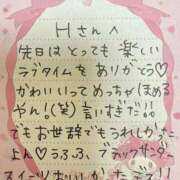 Hさんへ
先日はとっても楽しい
ラブタイムをありがとう♡
かわいいってめっちゃほめる
やん。(笑)言いすぎだ!!
でもお世辞でもうれしかっ
たよん♡うふふ、ブラックサンダー
スイーツおいしかったデス!!